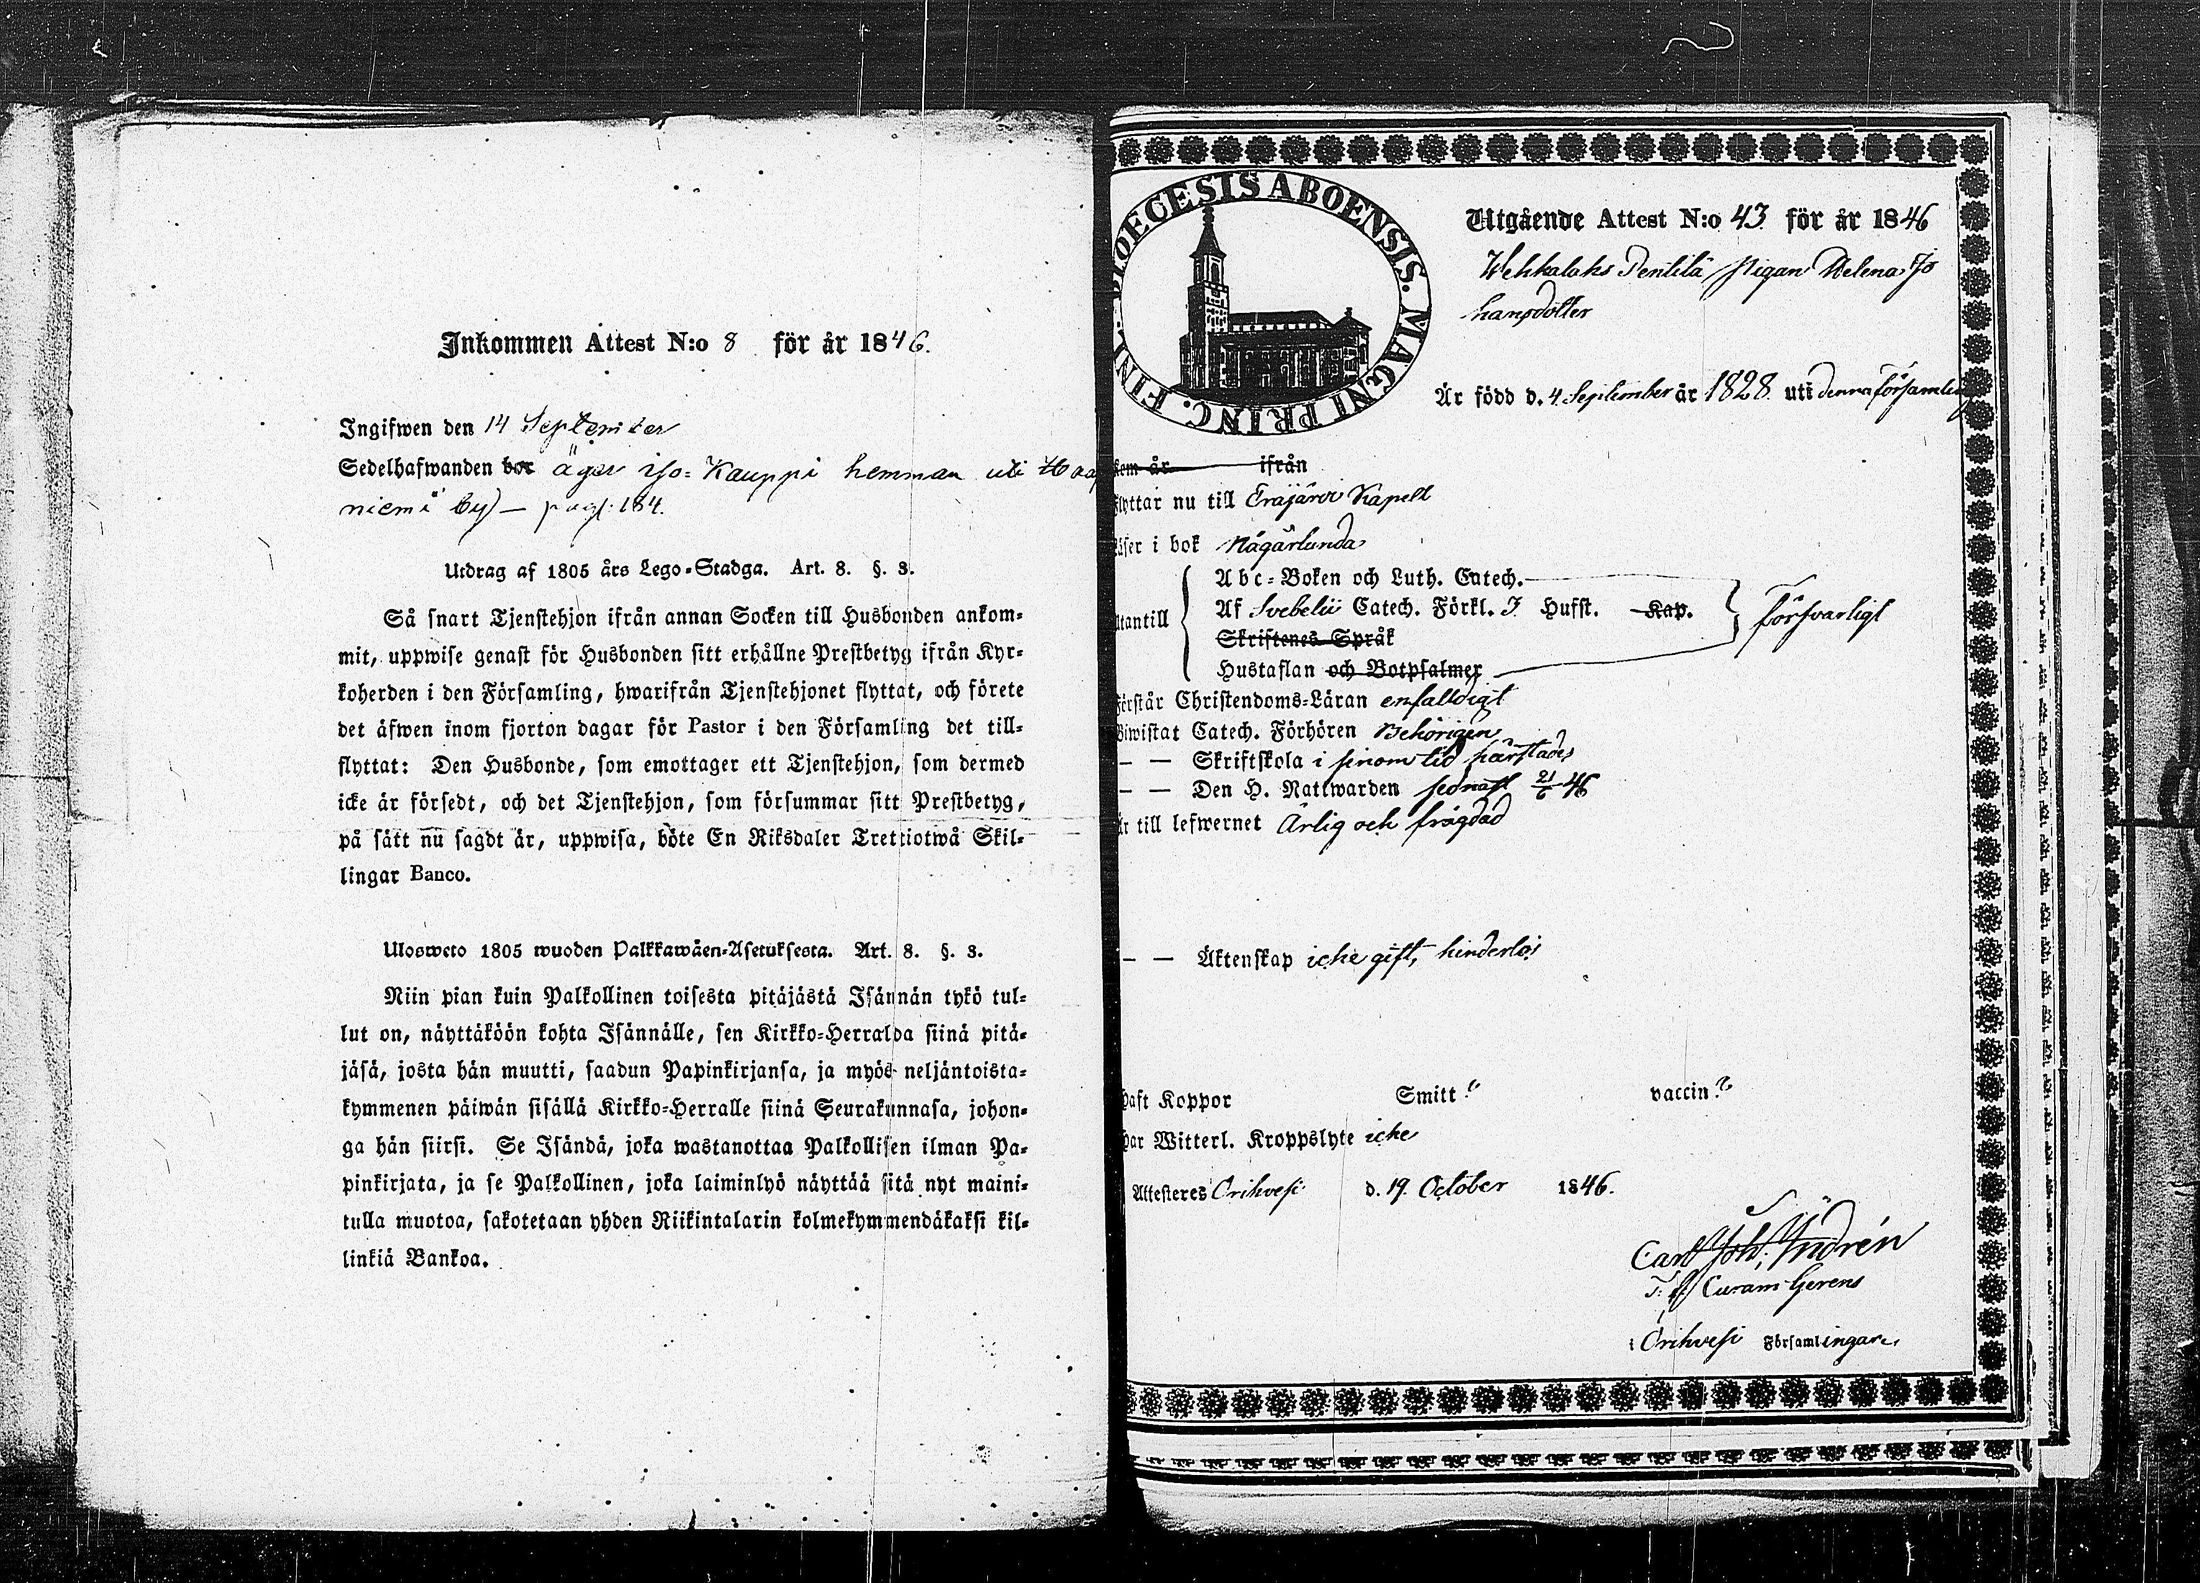 Inkommen Attest N:o 8 för år 1846.
Ingifwen den 14 September
Sedelhafwanden bor äger iso-Kauppi hemman uti Haap
niemi by — pag. 184.
Utdrag af 1805 års Lego-Stadga. Art. 8. §. 3.
Så snart Tjenstehjon ifrån annan Socken till Husbonden ankom-
mit, uppwise genast för Husbonden sitt erhållne Prestbetyg ifrån Kyr-
koherden i den Församling, hwarifrån Tjenstehjonet flyttat, och förete
det äfwen inom fjorton dagar för Pastor i den Församling det till-
flyttat: Den Husbonde, som emottager ett Tjenstehjon, som dermed
icke är försedt, och det Tjenstehjon, som försummar sitt Prestbetyg,
på sätt nu sagdt är, uppwisa, böte En Riksdaler Trettiotwå Skil-
lingar Banco.
Ulosweto 1805 wuoden Palkkawäen-Asetuksesta. Art. 8. §. 3.
Niin pian kuin Palkollinen toisesta pitäjästä Isännän tykö tul-
lut on, näyttäköön kohta Isännälle, sen Kirkko-Herralda siinä pitä-
jäsä, josta hän muutti, saadun Papinkirjansa, ja myös neljäntoista-
kymmenen päiwän sisällä Kirkko-Herralle siinä Seurakunnasa, johon-
ga hän siirsi. Se Isändä, joka wastanottaa Palkollisen ilman Pa-
pinkirjata, ja se Palkollinen, joka laiminlyö näyttää sitä nyt maini-
tulla muotoa, sakotetaan yhden Riikintalarin kolmekymmendäkaksi kil-
linkiä Bankoa.
DIOECESIS ABOENSIS. MAGNI PRINC. FINL.
Utgående Attest N:o 43 för år 1846
Wehkalaks Pentilä Pigan Helena Jo
hansdotter
Är född d. 4 September år 1828 uti denna församling
kom år ifrån
flyttar nu till Eräjärvi Kapell
läser i bok någärlunda
utantill
Abc-Boken och Luth. Catech.
Af Svebelii Catech. Förkl. I Hufst. Kap. försvarligt
Skriftenes Språk
Hustaflan och Botpsalmer
Förstår Christendoms-Läran enfalldigt
Biwistat Catech. Förhören Behörigen
— — Skriftskola i sinom tid
— — Den H. Nattwarden sednast 21/6 46
Är till lefwernet Ärlig och frägdad
— — Äktenskap icke gift, hinderlös
haft Koppor Smitt? vaccin?
har Witterl. Kroppslyte icke
Attesteres Orihvesi d. 19. October 1846.
Carl Joh. Indrén
T. f. Curam Gerens
i Orihvesi Församlingar.